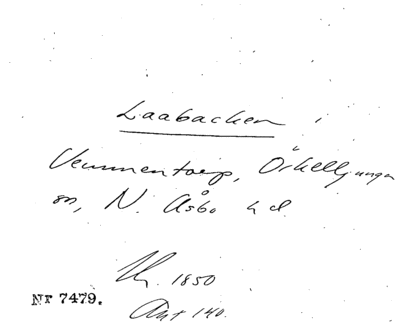 Laabacken i
Vemmentorp, Örkelljunga
sn, N. Åsbo hd.
1850
Nr 7479.
Ant 140.